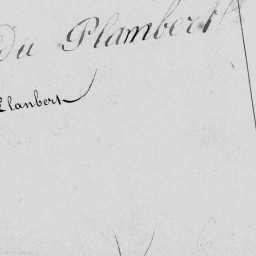 Du Plambert
Planbert